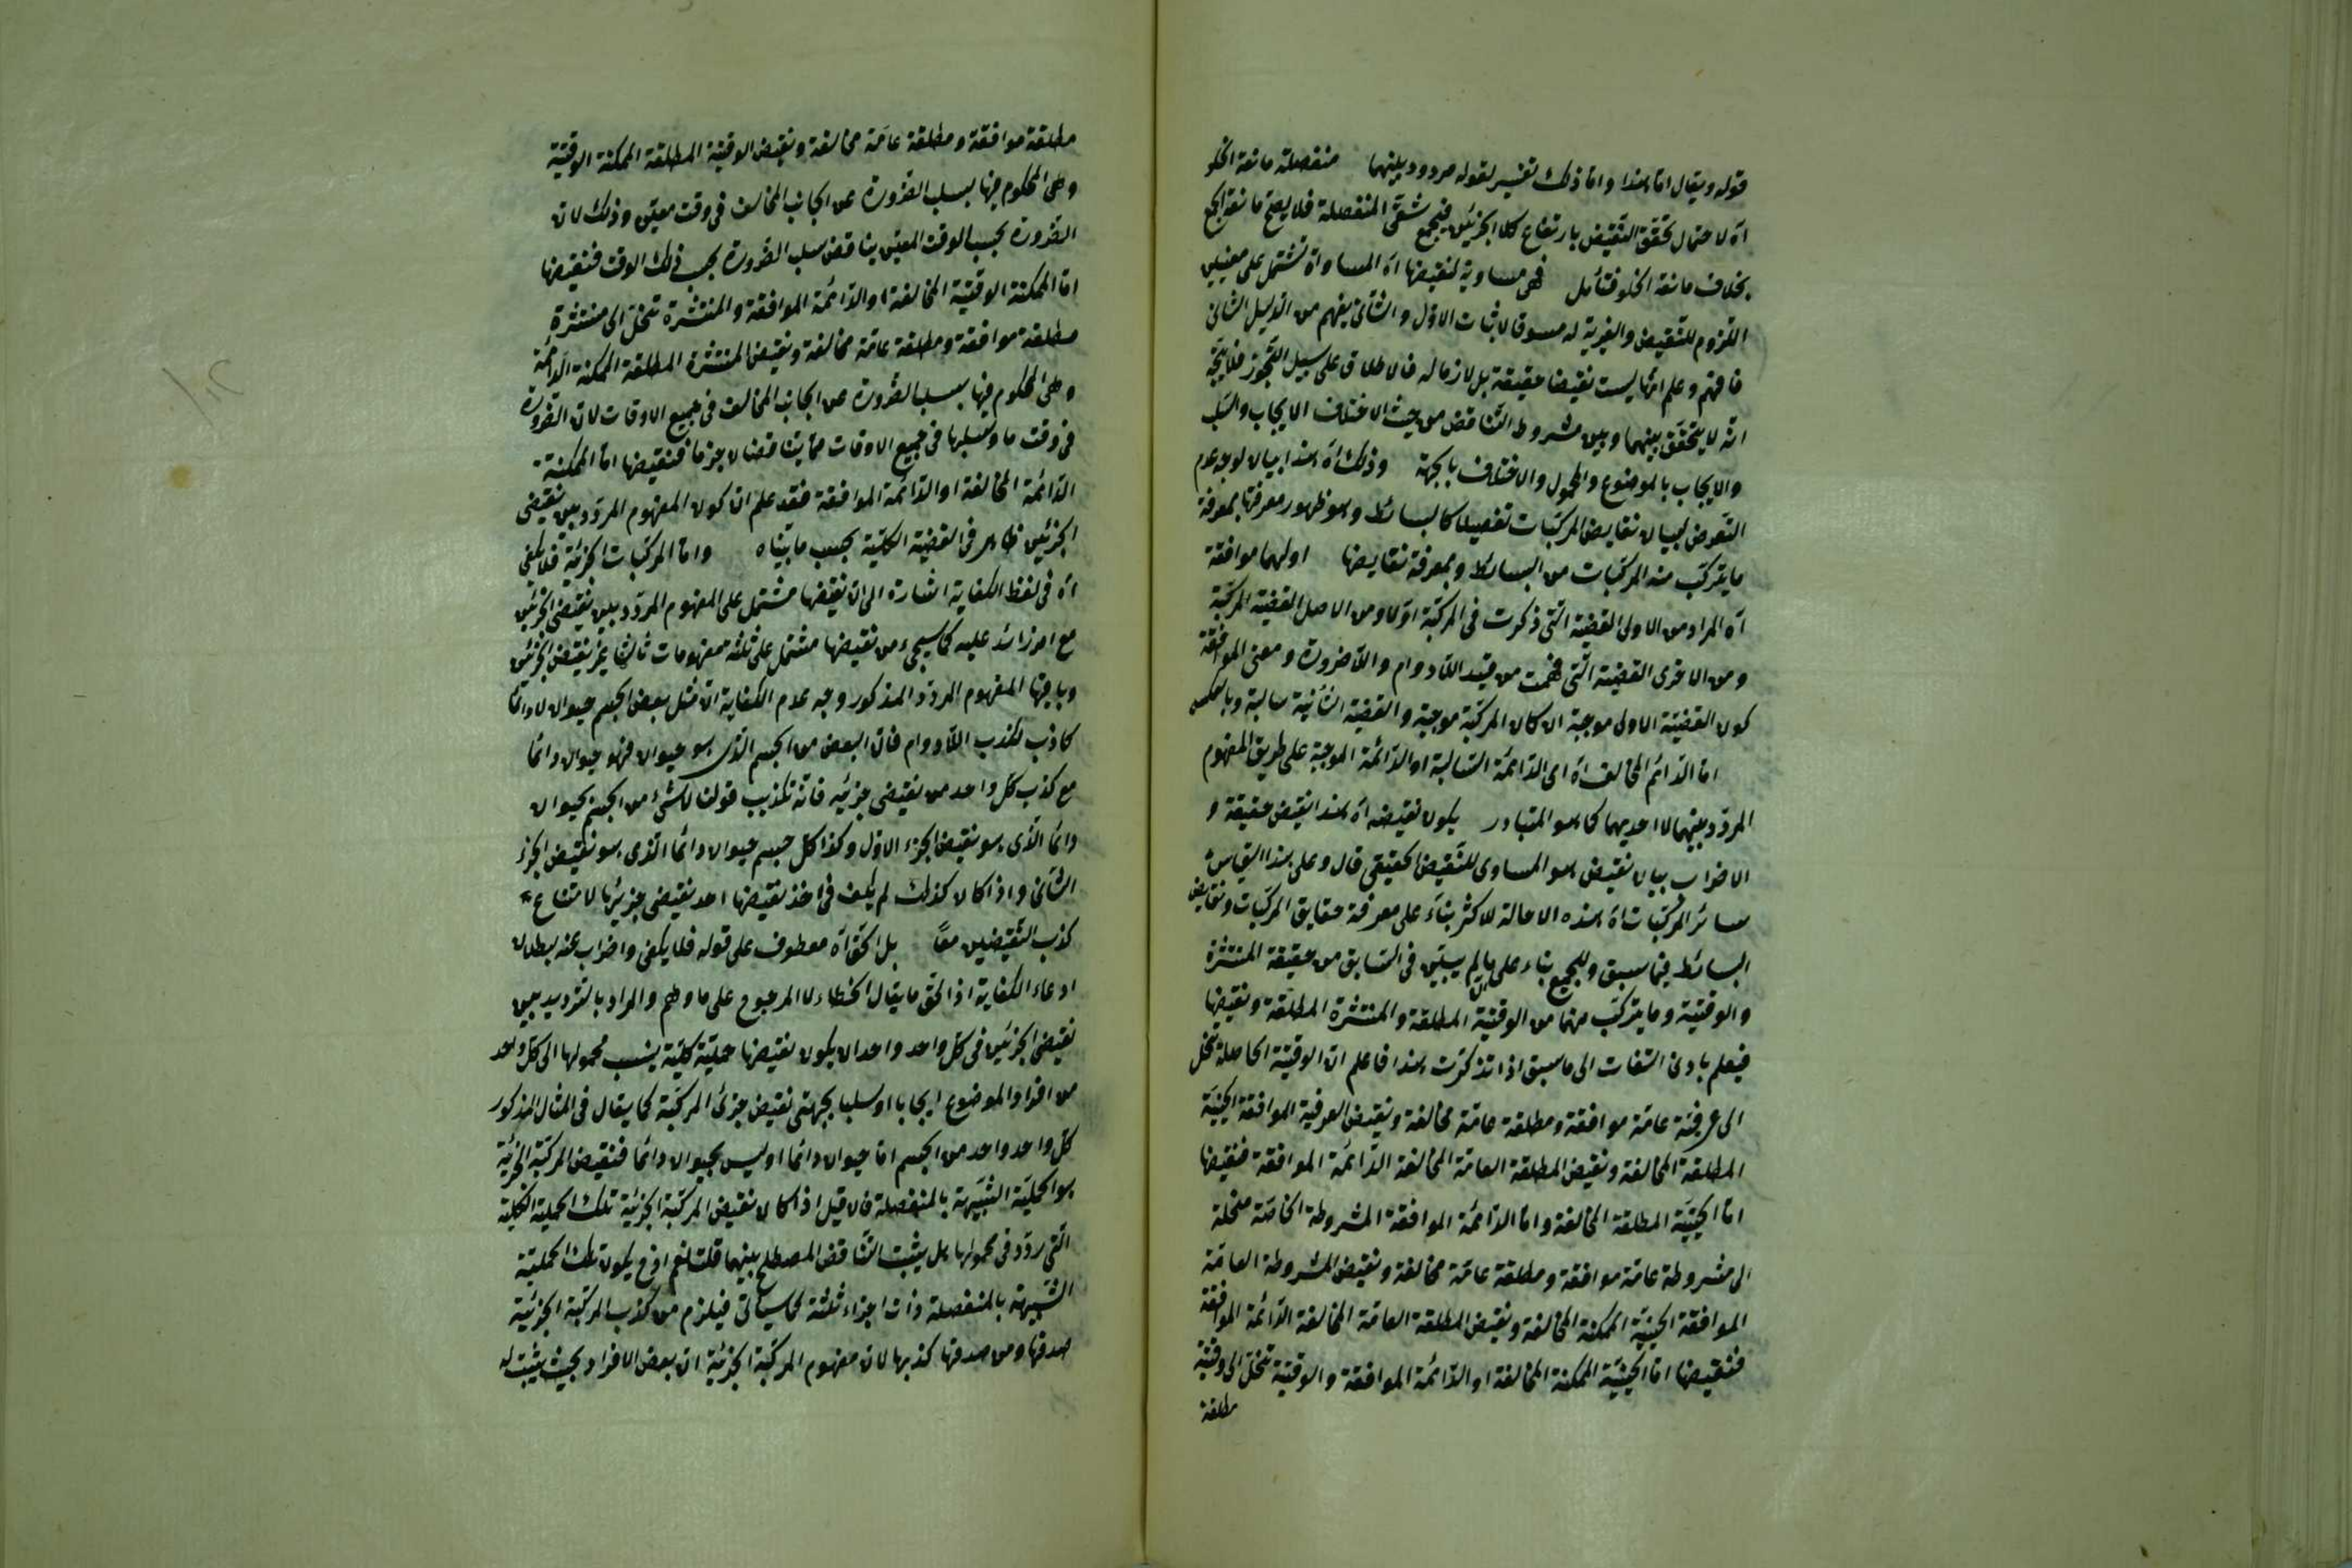 قوله ويقال اما هذا واما ذلك تفسير لقوله مردود بينهما منفصلة مانعة الخلو
اه لاحتمال تحقق النقيض بارتفاع كلا الجزئين فيجمع شقى المنفصلة فلا يصح مانعة الجمع
بخلاف مانعة الخلو فتأمل فهى مساوية لنقيضها اه المساواة تشتمل على معنيين
اللزوم للنقيض والغيرية له مسوق لاثبات الاول والثانى يفهم من الدليل الثانى
فافهم وعلم انها ليست نقيضا حقيقة بل لازما له فالاطلاق على سبيل التجوز فلا يتجه
انه لا يتحقق بينهما وبين شروط التناقض من حيث الاختلاف الايجاب والسلب
والايجاب بالموضوع والمحمول والاختلاف بالجهة وذلك اه هذا بيان لوجه عدم
التعرض لبيان نقايض المركبات تفصيلا كالبسائط وهو ظهور معرفتها بمعرفة
ما يتركب منه المركبات من البسائط وبمعرفة نقايضها اوليهما موافقة
اه المراد من الاولى القضية التى ذكرت فى المركبة اولا ومن الاصل القضية المركبة
ومن الاخرى القضية التى فهمت من قيد اللادوام واللاضرورة ومعنى الموافقة
كون القضية الاولى موجبة ان كان المركبة موجبة والقضية الثانية سالبة وبالعكس
اما الدائم المخالف اه اى الدائمة السالبة او الدائمة الموجبة على طريق المفهوم
المردد بينهما لا احديهما كما هو المتبادر يكون نقيضه اه هذا نقيض حقيقة و
الاضراب بيان نقيض هو المساوى للنقيض الحقيقى قال وعلى هذا القياس
سائر المركبات اه هذه الاحالة للاكثر بناء على معرفة حقايق المركبات ونقايض
البسائط فيما سبق وللجميع بناء على ما لم يبين فى السابق من حقيقة المنتشرة
والوقتية وما يتركب منهما من الوقتية المطلقة والمنتشرة المطلقة ونقيضها
فيعلم بادنى التفات الى ما سبق اذا تذكرت هذا فاعلم ان الوقتية الحاصلة تنحل
الى عرفية عامة موافقة ومطلقة عامة مخالفة ونقيض العرفية الموافقة الحينية
المطلقة المخالفة ونقيض المطلقة العامة المخالفة الدائمة الموافقة فنقيضها
اما الحينية المطلقة المخالفة واما الدائمة الموافقة المشروطة الخاصة منحلة
الى مشروطة عامة موافقة ومطلقة عامة مخالفة ونقيض المشروطة العامة
الموافقة الحينية الممكنة المخالفة ونقيض المطلقة العامة المخالفة الدائمة الموافقة
فنقيضها اما الحينية الممكنة المخالفة او الدائمة الموافقة والوقتية تنحل الى وقتية
مطلقة
مطلقة موافقة ومطلقة عامة مخالفة ونقيض الوقتية المطلقة الممكنة الوقتية
وهى المحكوم فيها بسلب الضرورة عن الجانب المخالف فى وقت معين وذلك لان
الضرورة بحسب الوقت المعين يناقض سلب الضرورة بحسب ذلك الوقت فنقيضها
اما الممكنة الوقتية المخالفة او الدائمة الموافقة والمنتشرة تنحل الى منتشرة
مطلقة موافقة ومطلقة عامة مخالفة ونقيض المنتشرة المطلقة الممكنة الدائمة
وهى المحكوم فيها بسلب الضرورة عن الجانب المخالف فى جميع الاوقات لان الضرورة
فى وقت ما وسلبها فى جميع الاوقات مما يتناقضان جزما فنقيضها اما الممكنة
الدائمة المخالفة او الدائمة الموافقة فقد علم ان كون المفهوم المردد بين نقيضى
الجزئين ظاهر فى القضية الكلية بحسب ما بيناه واما المركبات الجزئية فلا يكفى
اه فى لفظ الكفاية اشارة الى ان نقيضها مشتمل على المفهوم المردد بين نقيضى الجزئين
مع امر زائد عليه كما سيجىء من نقيضها مشتمل على ثلثة مفهومات ثالثها غير نقيض الجزئين
وباقيها المفهوم المردد المذكور وجه عدم الكفاية ان مثل بعض الجسم حيوان لا دائما
كاذب لكذب اللادوام فان البعض من الجسم الذى هو حيوان فهو حيوان دائما
مع كذب كل واحد من نقيضى جزئيه فانه تكذيب قولنا لا شىء من الجسم بحيوان
دائما الذى هو نقيض الجزء الاول وكذا كل جسم حيوان دائما الذى هو نقيض الجزء
الثانى واذا كان كذلك لم يكف فى اخذ نقيضها احد نقيضى جزئيها لامتناع
كذب النقيضين معا بل الحق اه معطوف على قوله فلا يكفى واضراب عنه ببطلان
ادعاء الكفاية اذ الحق ما يقال الخطاء لا المرجوع على ما وهم والمراد بالترديد بين
نقيضى الجزئين فى كل واحد واحد ان يكون نقيضها حملية كلية ينسب محمولها الى كل واحد
من افراد الموضوع ايجابا او سلبا بجهتى نقيض جزئى المركبة كما يقال فى المثال المذكور
كل واحد واحد من الجسم اما حيوان دائما او ليس بحيوان دائما فنقيض المركبة الجزئية
هو الحملية الشبيهة بالمنفصلة فان قيل اذا كان نقيض المركبة الجزئية تلك الحملية الكلية
التى ردد فى محمولها هل يثبت التناقض المصطلح بينهما قلت نعم اذ ح يكون تلك الحملية
الشبيهة بالمنفصلة ذات اجزاء ثلثة كما سيأتى فيلزم من كذب المركبة الجزئية
صدقها ومن صدقها كذبها لان مفهوم المركبة الجزئية ان بعض الافراد بحيث يثبت له